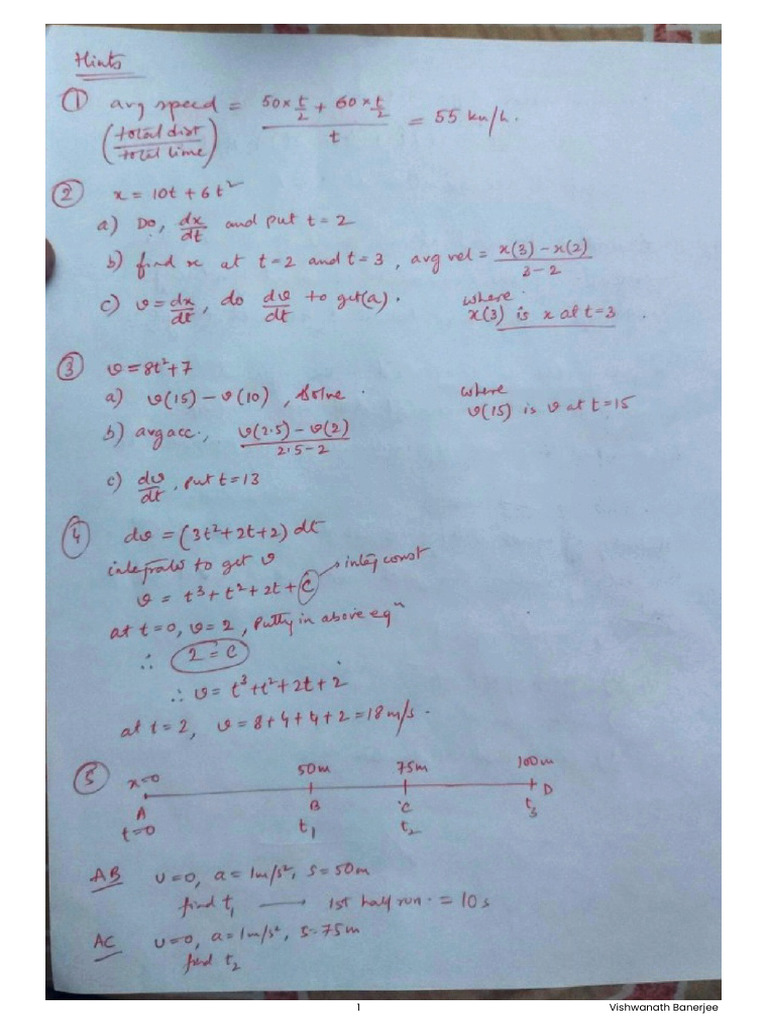 Hints
① avg speed = (50×t/2 + 60×t/2)/t = 55 km/h.
(total dist/total time)
② x = 10t + 6t²
a) Do, dx/dt and put t = 2
b) find x at t=2 and t=3, avg vel = (x(3) – x(2))/(3–2)
c) v = dx/dt, do dv/dt to get (a). where
x(3) is x at t=3.
③ v = 8t²+7
a) v(15) – v(10), solve. where
v(15) is v at t=15
b) avg acc., (v(2.5) – v(2))/(2.5–2)
c) dv/dt, put t=13
④ dv = (3t²+2t+2) dt
integrate to get v
v = t³ + t² + 2t + C → integ const
at t=0, v=2, putty in above eqⁿ
∴ 2 = C
∴ v = t³+t²+2t+2
at t=2, v = 8+4+4+2 = 18 m/s.
⑤ x=0 50m 75m 100m
A B C D
t=0 t₁ t₂ t₃
AB u=0, a=1m/s², s=50m
find t₁ → 1st half run. = 10s
AC u=0, a=1m/s², s=75m
find t₂
1 Vishwanath Banerjee